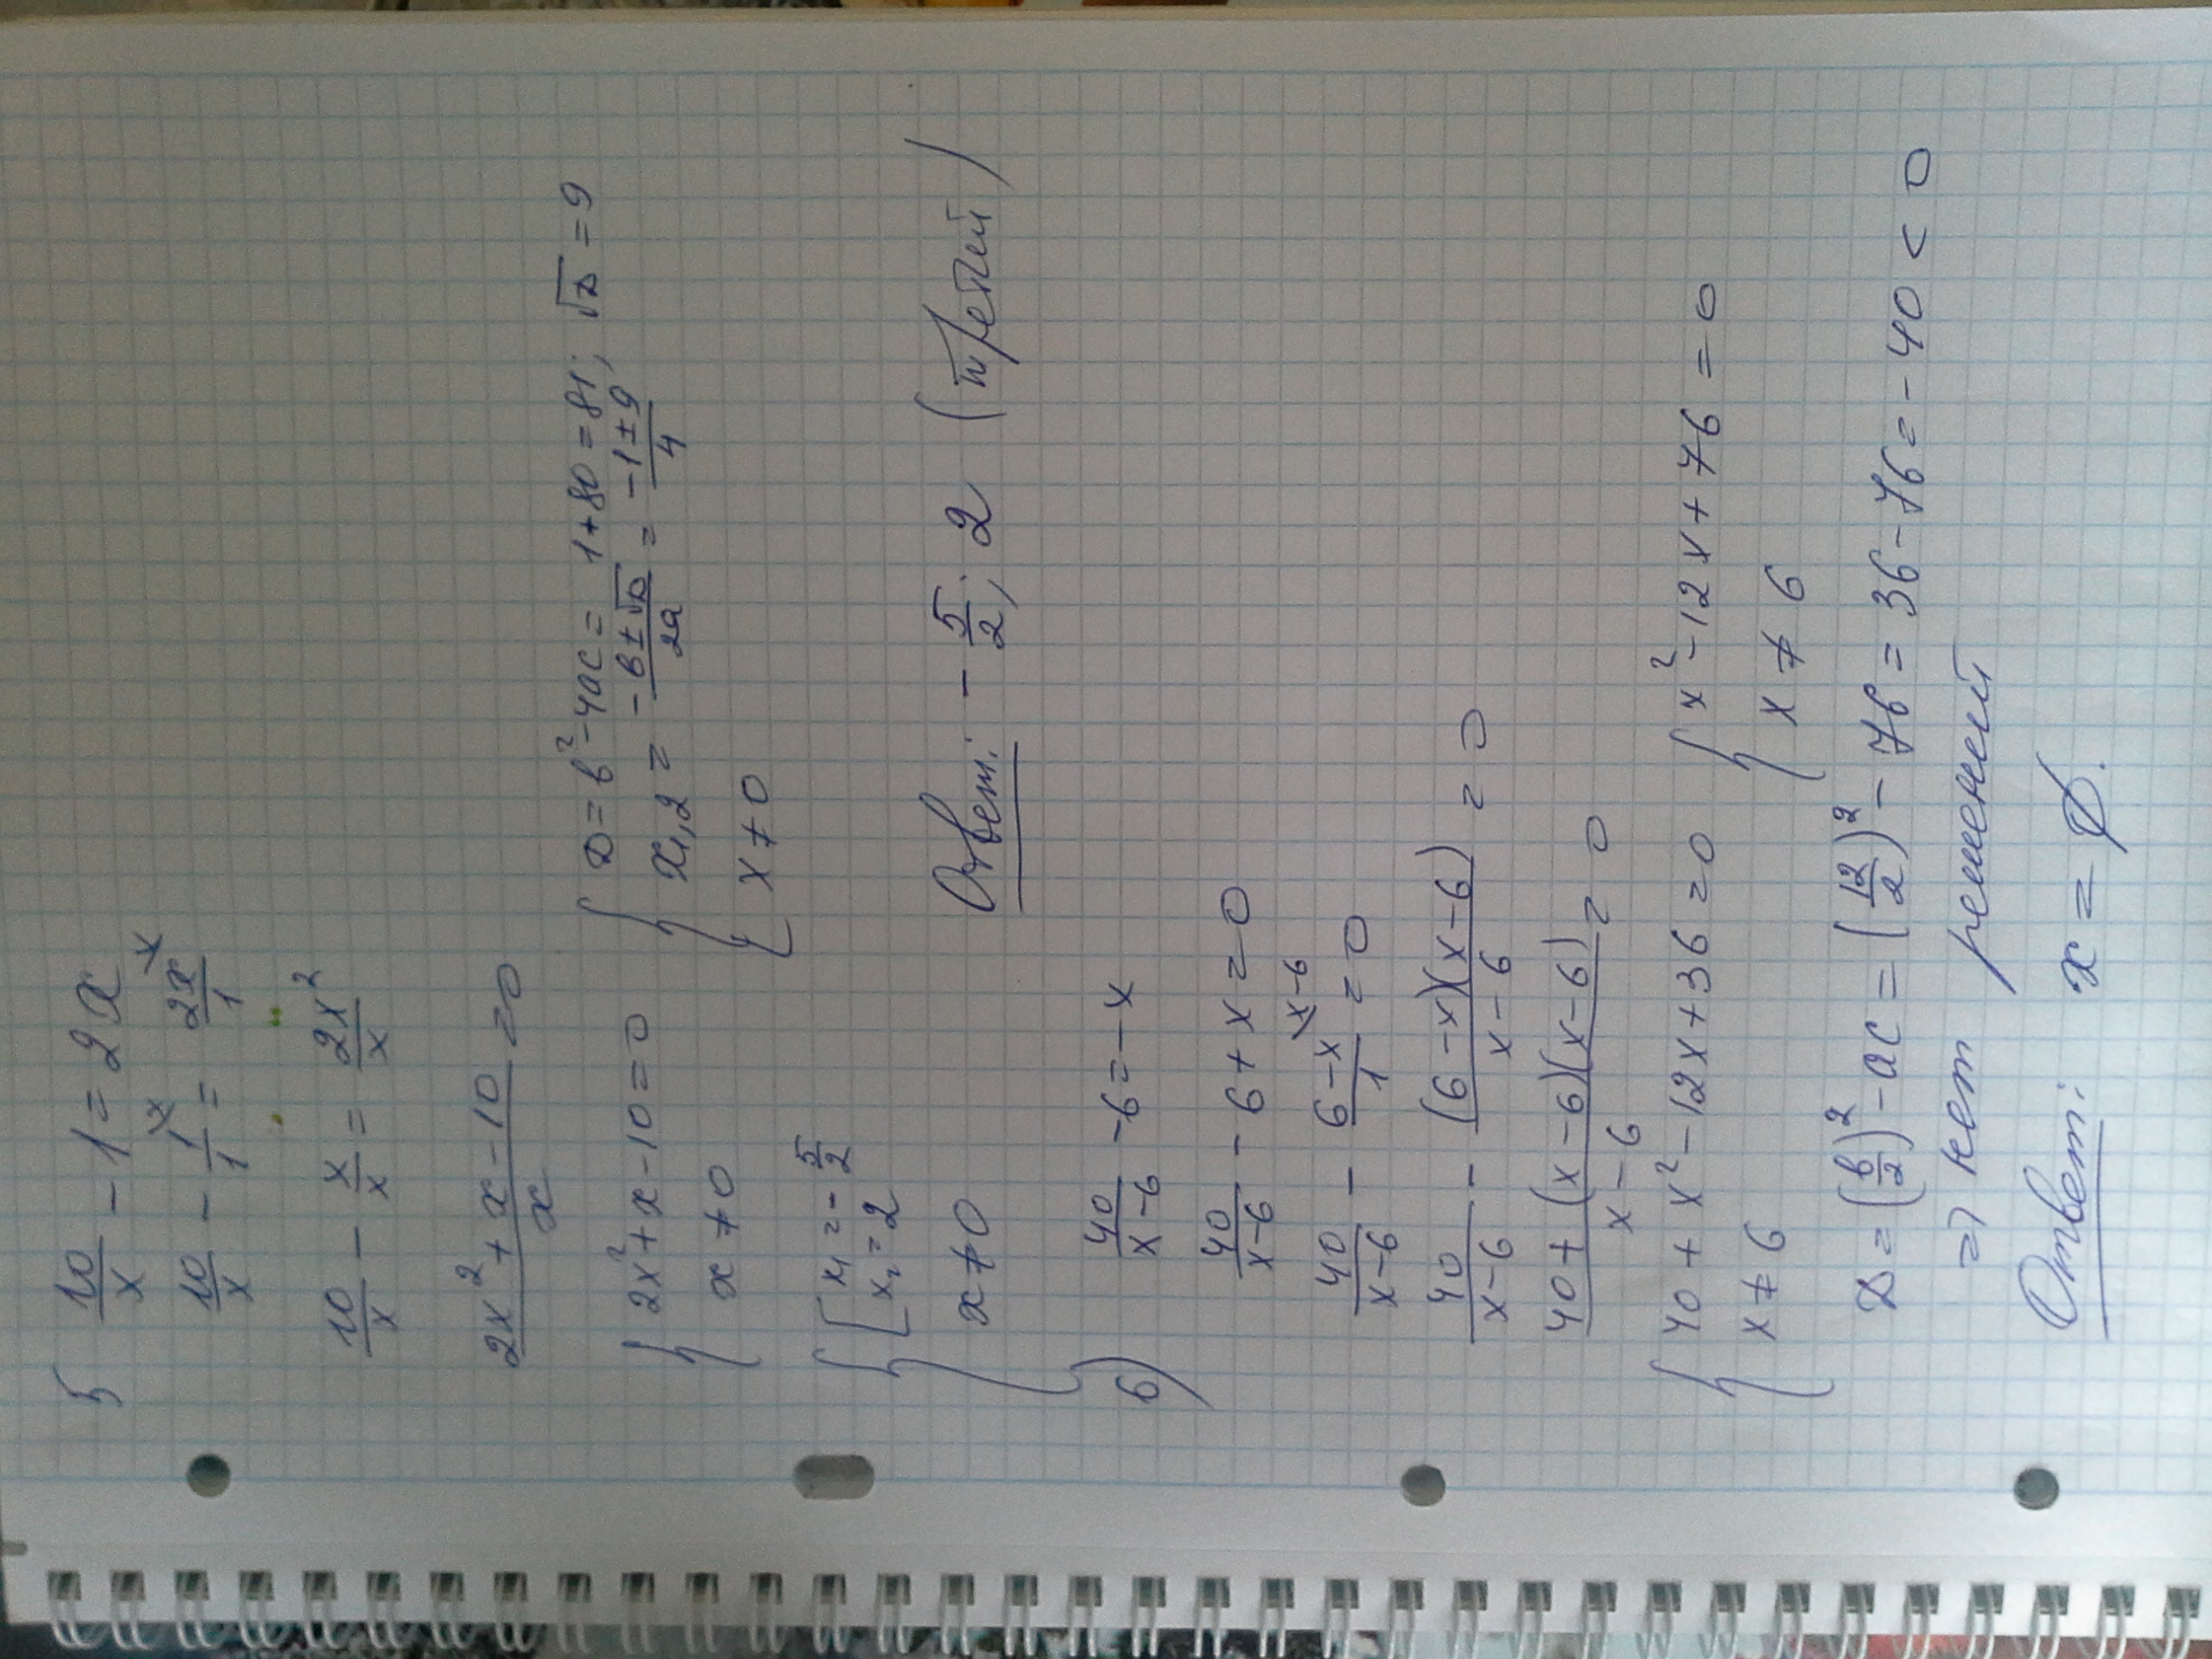 5 10/x - 1 = 2x
10/x - 1/1 \x = 2x/1 \x
10/x - x/x = 2x²/x
2x² + x - 10 / x = 0
{ 2x² + x - 10 = 0
x ≠ 0
{ D = b² - 4ac = 1 + 80 = 81; √D = 9
x₁,₂ = -b ± √D / 2a = -1 ± 9 / 4
x ≠ 0
{ [ x₁ = - 5/2
x₂ = 2
x ≠ 0
Ответ: - 5/2; 2 (третий)
6) 40/x-6 - 6 = -x
40/x-6 - 6 + x = 0
40/x-6 - 6-x/1 \x-6 = 0
40/x-6 - (6-x)(x-6)/x-6 = 0
40 + (x-6)(x-6) / x-6 = 0
{ 40 + x² - 12x + 36 = 0
x ≠ 6
{ x² - 12x + 76 = 0
x ≠ 6
D = (b/2)² - ac = (12/2)² - 76 = 36 - 76 = -40 < 0
=> нет решений
Ответ: x = ∅.